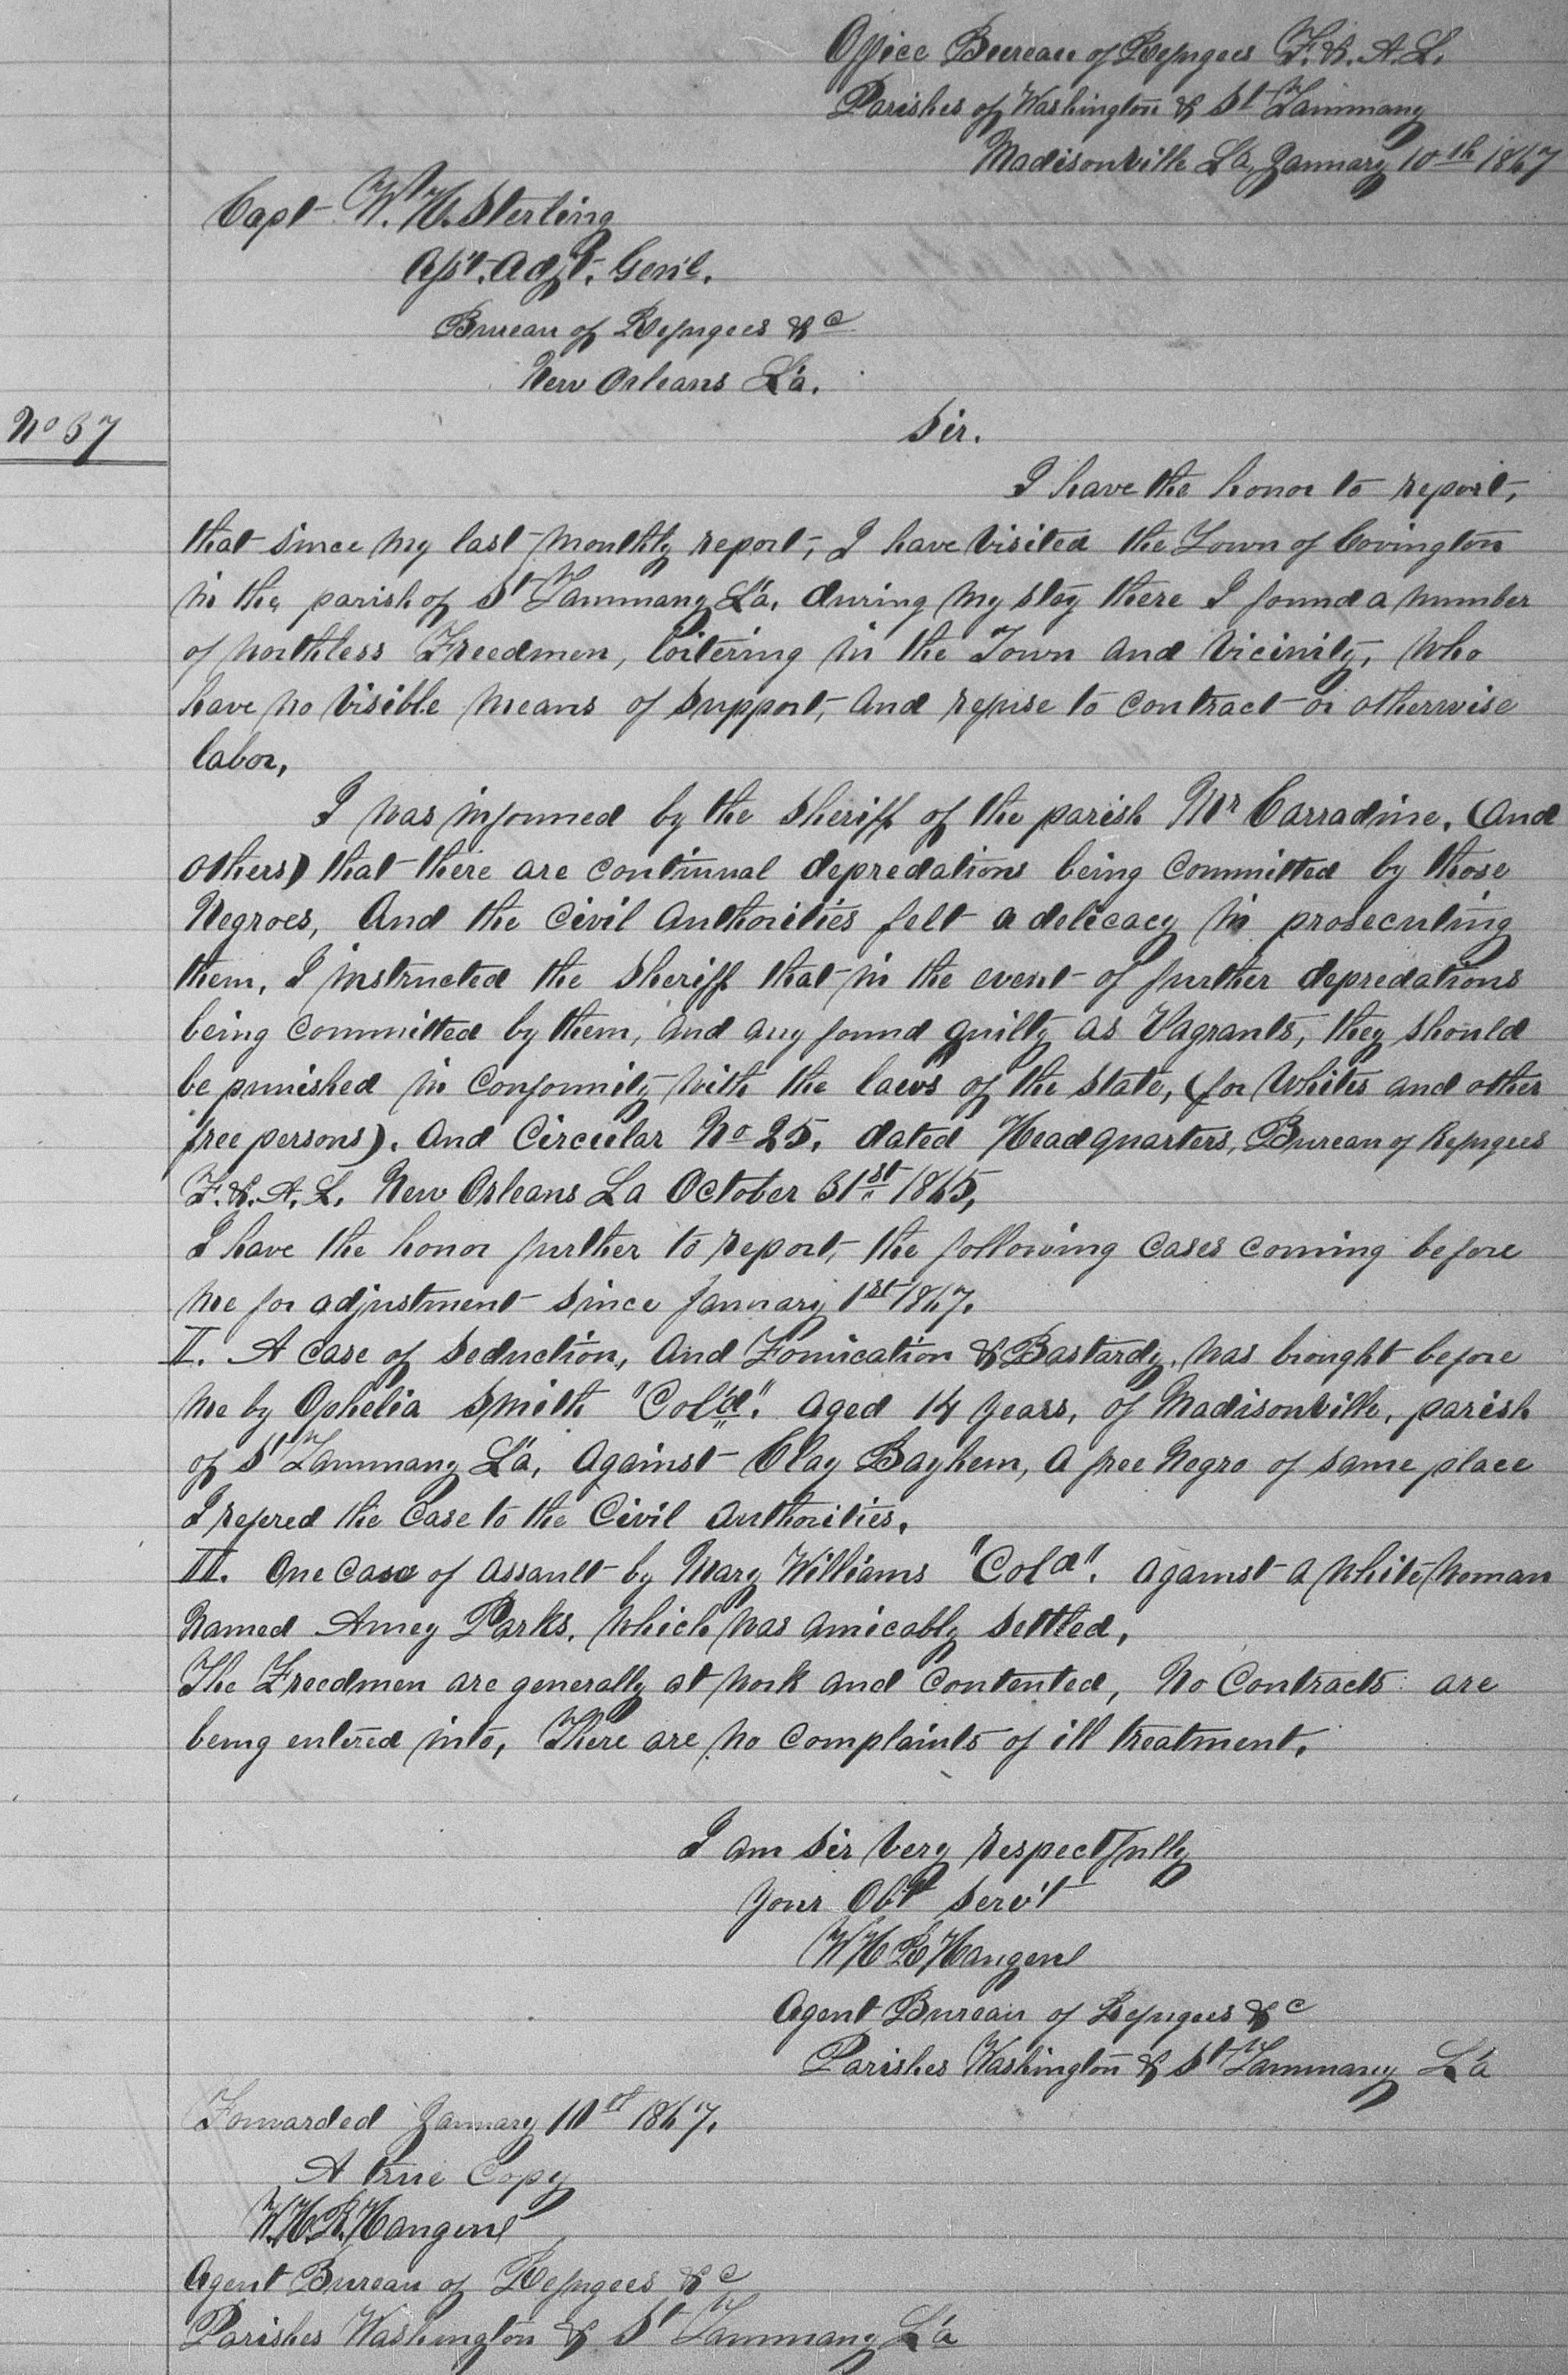 Office Bureau of Refugees F. & A. L.
Parishes of Washington & St Tammany
Madisonville La, January 10th 1867
Capt W. H. Sterling
Ass't. Adjt. Gen'l.
Bureau of Refugees &c
New Orleans La.
No 37
Sir.
I have the honor to report,
that since my last monthly report, I have visited the Town of Covington
in the parish of St Tammany La. during my stay there I found a number
of worthless Freedmen, loitering in the Town and vicinity, who
have no visible means of support, and refuse to contract or otherwise
labor,
I was informed by the Sheriff of the parish Mr Carradine, (and
others) that there are continual depredations being committed by those
Negroes, And the Civil Authorities felt a delicacy in prosecuting
them, I instructed the Sheriff that in the event of further depredations
being committed by them, and any found guilty as Vagrants, they should
be punished in conformity with the laws of the State, (for Whites and other
free persons). And Circular No 25. dated Headquarters, Bureau of Refugees
F. & A. L. New Orleans La October 31st 1865,
I have the honor further to report, the following cases coming before
me for adjustment since January 1st 1867.
II. A case of Seduction, and Fornication & Bastardy, was brought before
me by Ophelia Smith "Col'd". aged 14 years, of Madisonville, parish
of St Tammany La, Against Clay Bayhem, a free Negro of same place
I refered the Case to the Civil Authorities.
III. One Case of Assault by Mary Williams "Cold". against a white woman
named Amey Parks, which was amicably settled,
The Freedmen are generally at work and contented, No Contracts are
being entered into, There are no complaints of ill treatment.
I am Sir very respectfully
Your Obt Serv't
W H R Hangen
Agent Bureau of Refugees &c
Parishes Washington & St Tammany La
Forwarded January 10th 1867.
A true Copy
W. H. R. Hangen
Agent Bureau of Refugees &c
Parishes Washington & St Tammany La